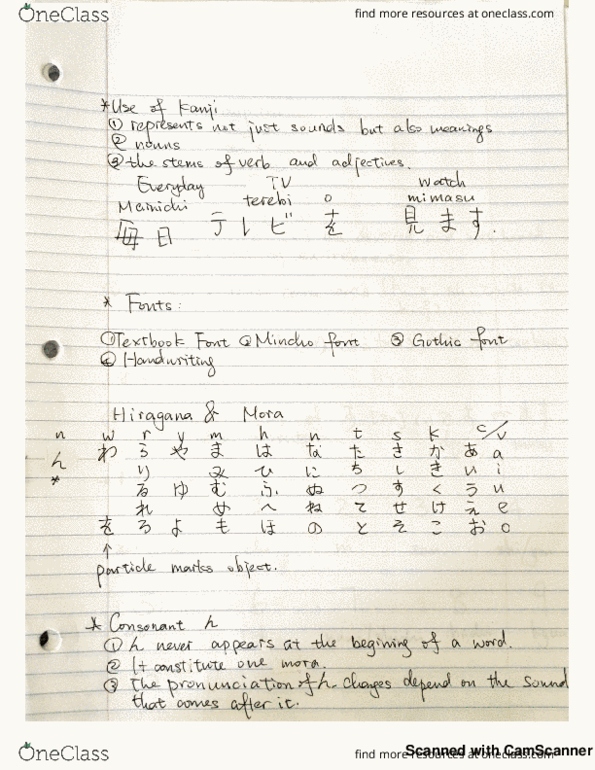 OneClass
find more resources at oneclass.com
*Use of Kanji
① represents not just sounds but also meanings
② nouns
③ the stems of verb and adjectives.
Everyday TV watch
Mainichi terebi o mimasu
毎日 テレビ を 見ます.
* Fonts:
①Textbook Font ②Mincho font ③ Gothic font
④ Handwriting
Hiragana & Mora
n w r y m h n t s k c/v
わ ら や ま は な た さ か あ a
ん り み ひ に ち し き い i
* る ゆ む ふ ぬ つ す く う u
れ め へ ね て せ け え e
を ろ よ も ほ の と そ こ お o
↑
particle marks object.
* Consonant ん
① ん never appears at the begining of a word.
② It constitute one mora.
③ the pronunciation of ん changes depend on the sound
that comes after it.
OneClass
find more resources at oneclass.com
Scanned with CamScanner